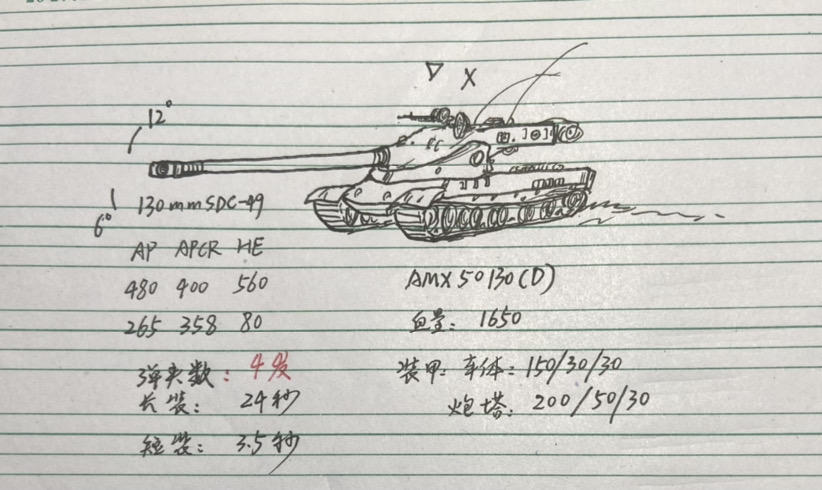 ▽ X
12°
6°
130mm SDC-49
AP APCR HE
480 400 560
265 358 80
弹夹数：4发
长装：24秒
短装：3.5秒
AMX 50 130(D)
血量：1650
装甲：车体：150/30/30
炮塔：200/50/30